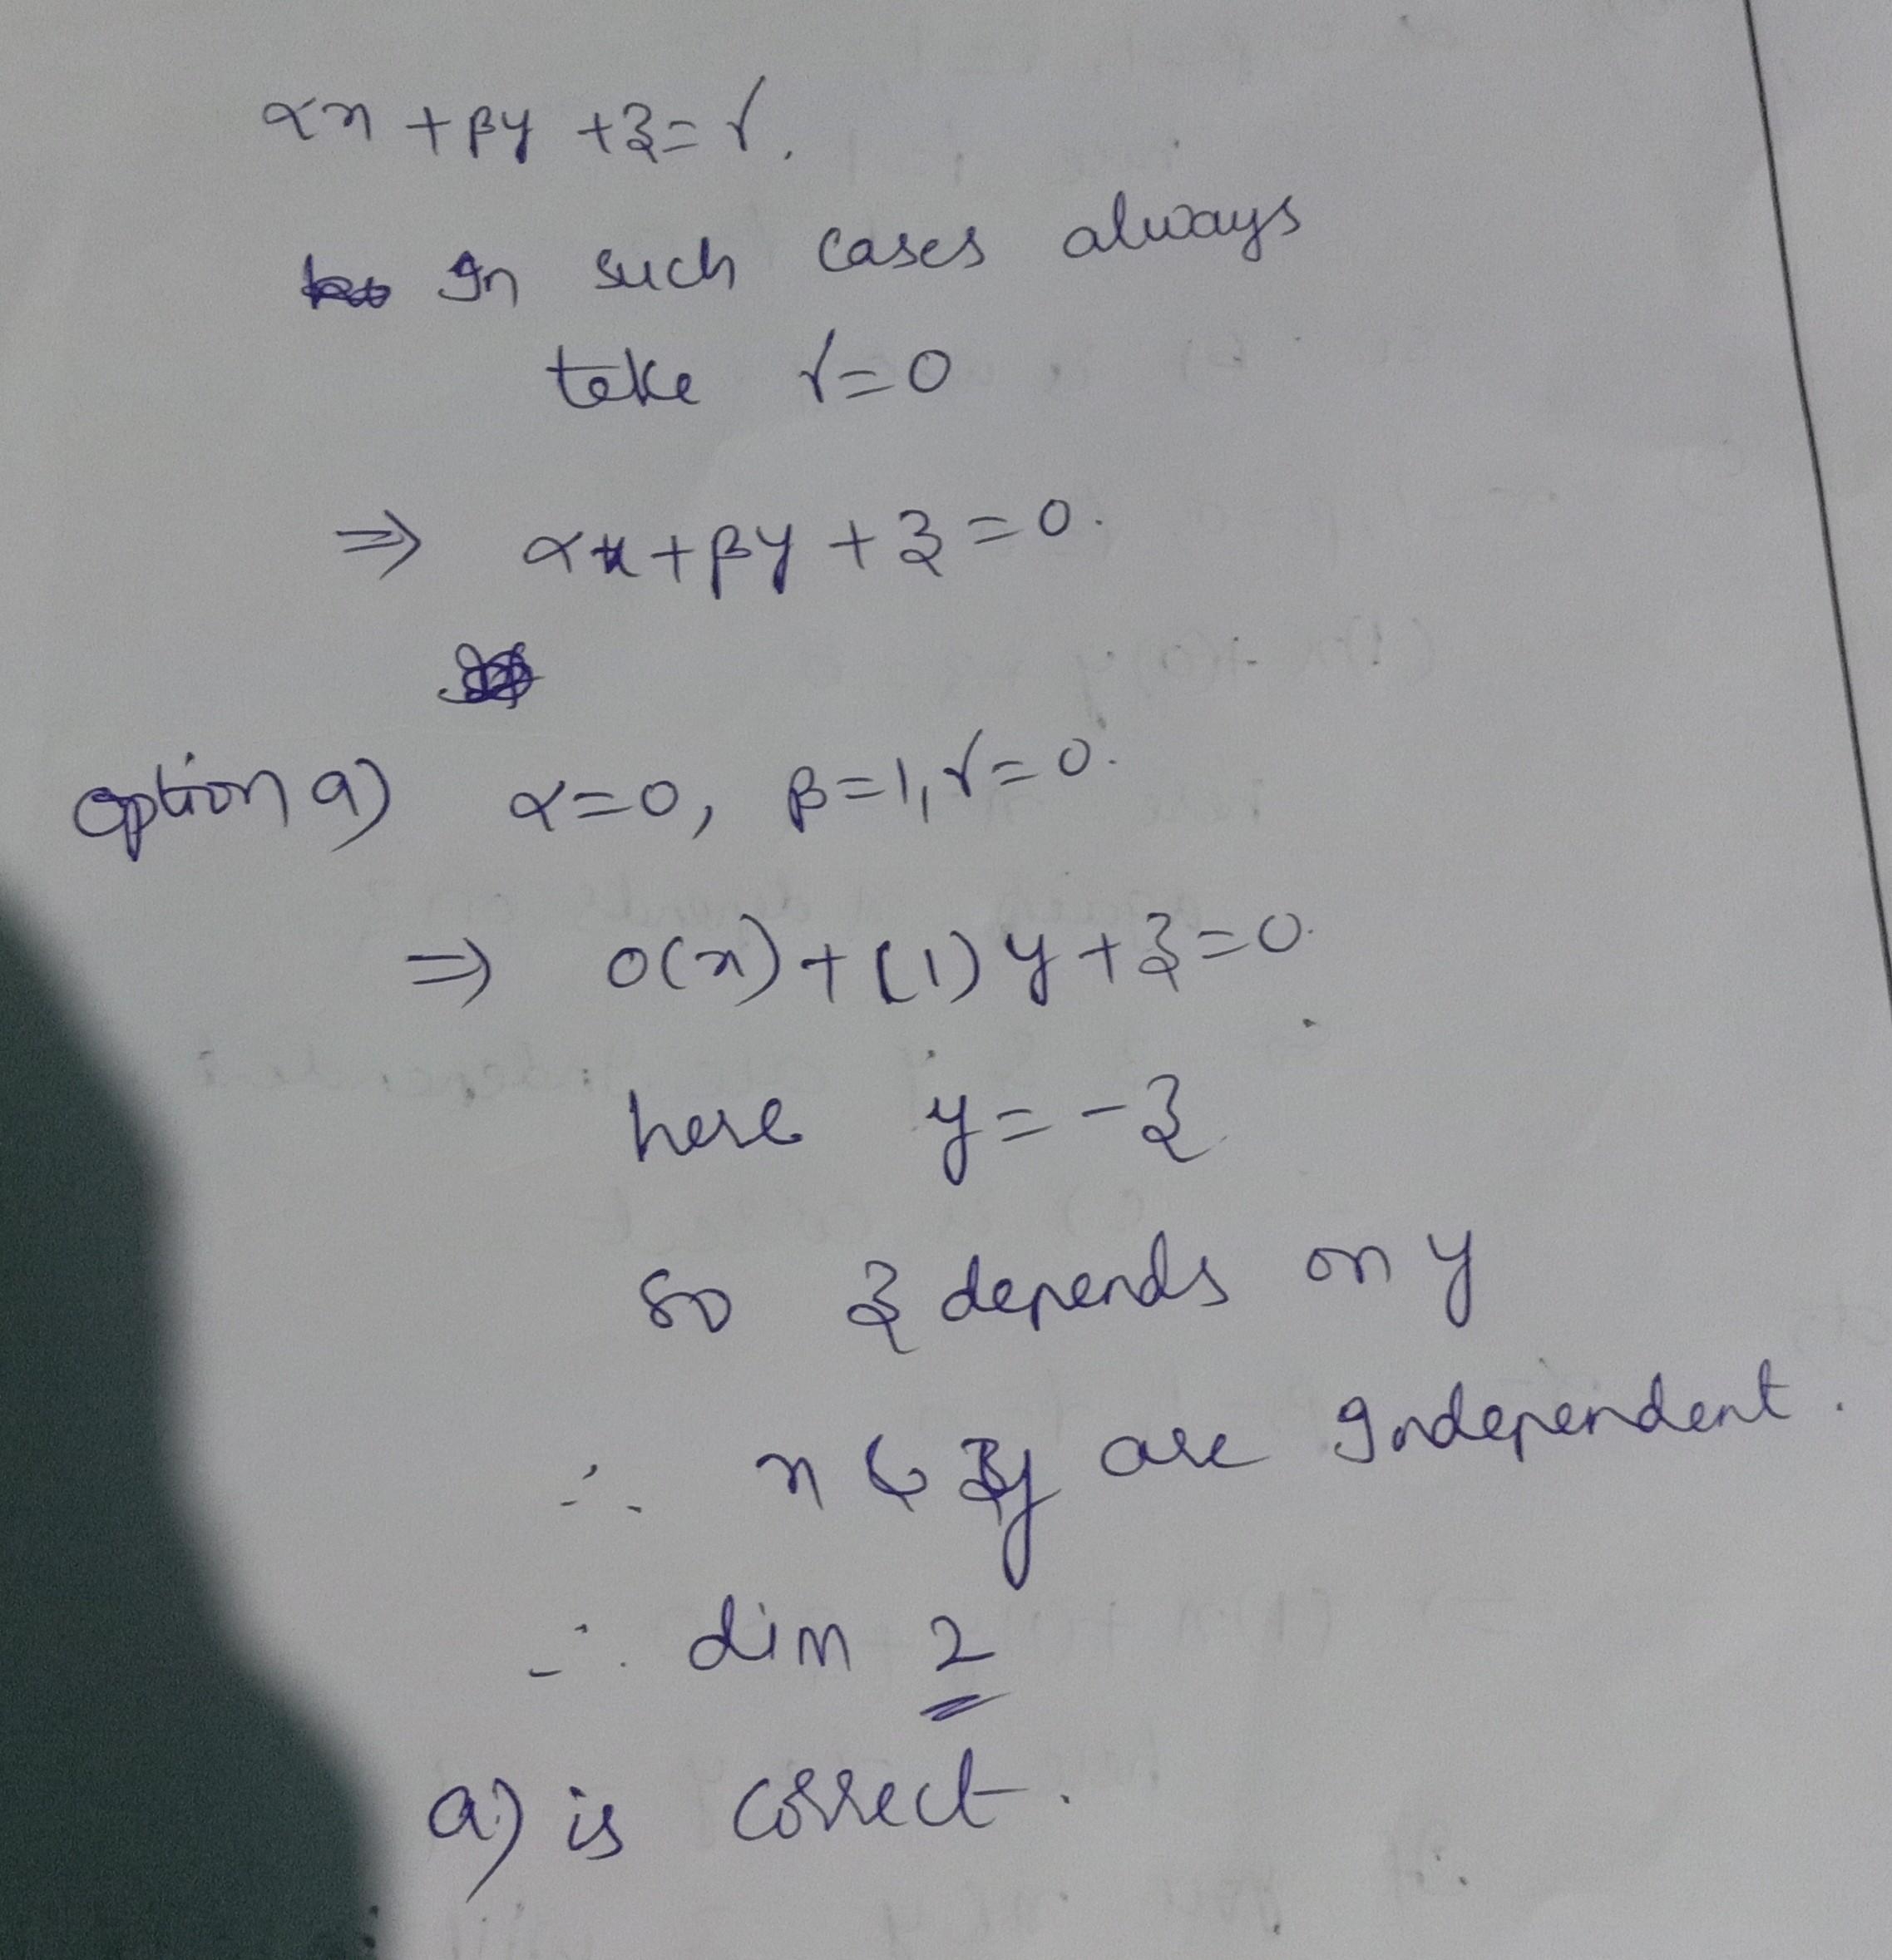 αx + βy + z = γ.
In such cases always
take γ=0
⇒ αx + βy + z = 0.
option a) α=0, β=1, γ=0.
⇒ 0(x) + (1) y + z = 0.
here y = -z
so z depends on y
∴ x & y are Independent.
∴ dim 2
a) is correct.